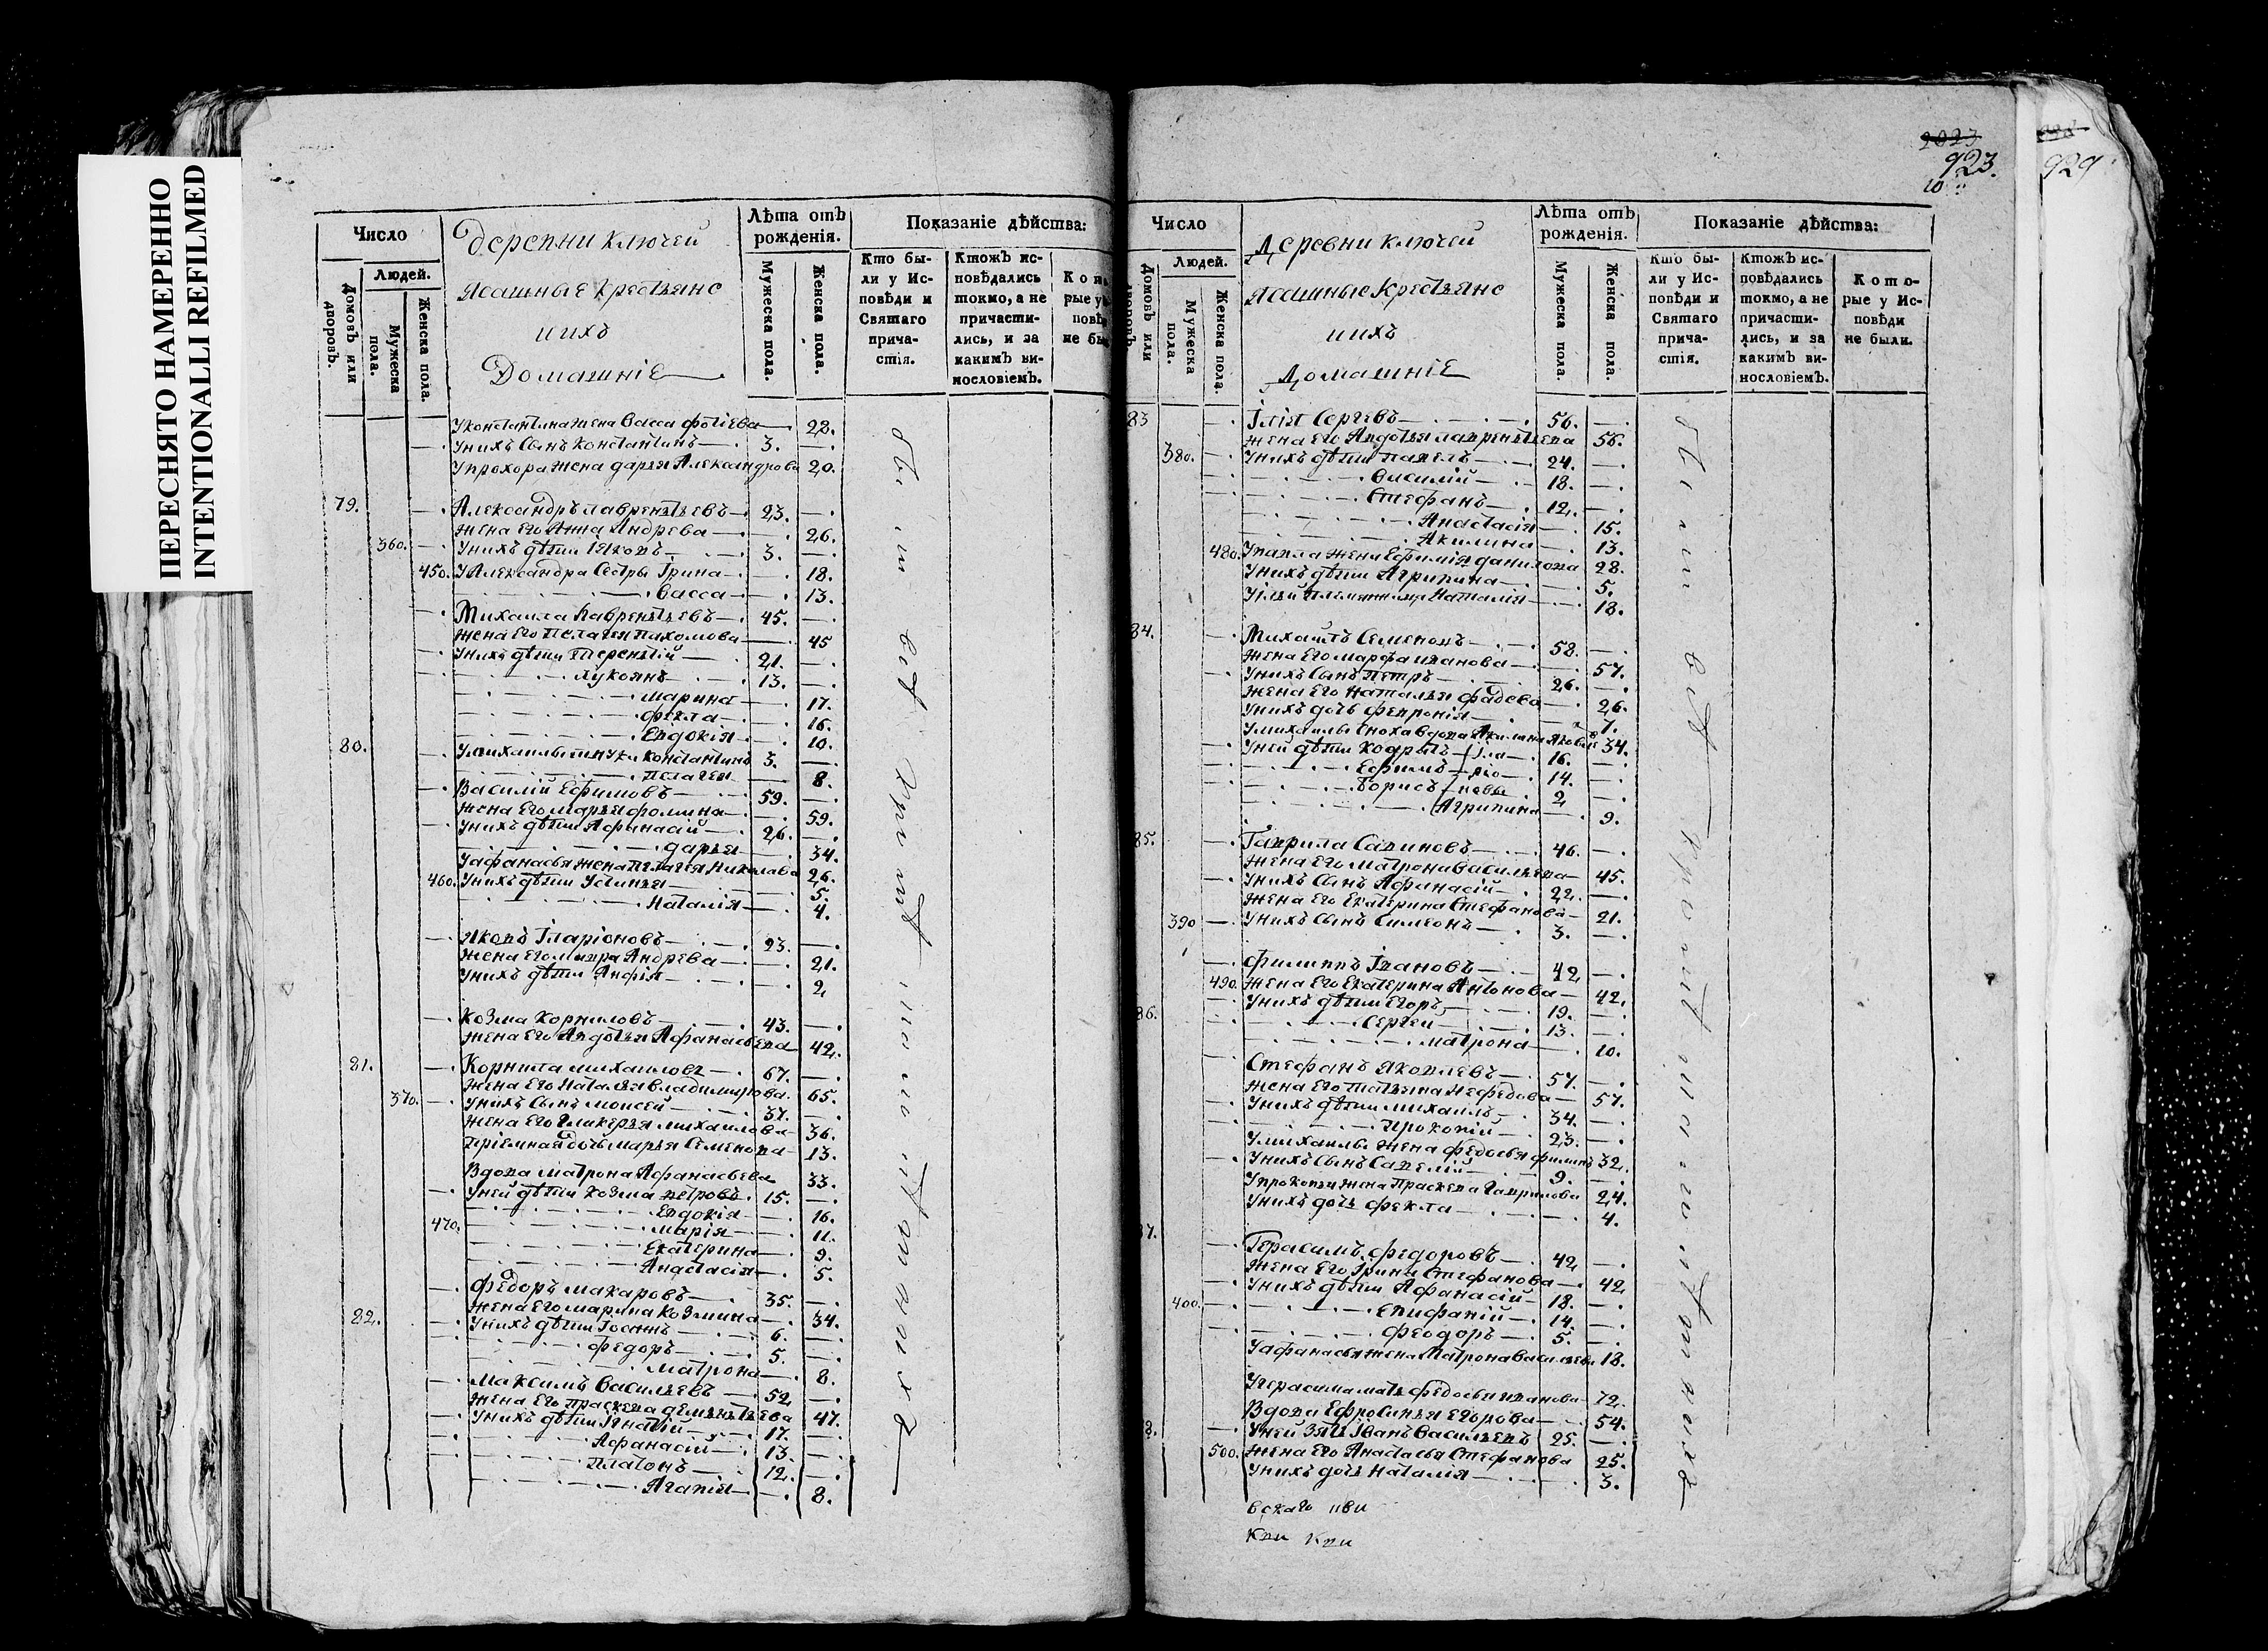 ПЕРЕСНЯТО НАМЕРЕННО
INTENTIONALLI REFILMED
Число
Людей.
Домовъ или дворовъ.
Мужеска пола.
Женска пола.
Деревни Ключей
Ясашные Крестьяне
и ихъ
Домашніе
Лѣта отъ рожденія.
Мужеска пола.
Женска пола.
Показаніе дѣйства:
Кто были у Исповѣди и Святаго причастія.
Ктожъ исповѣдались токмо, а не причастились, и за какимъ винословіемъ.
У Константина жена Васса Фотіева — 22.
У нихъ сынъ Константинъ — 3. —
У Прохора жена Дарья Александрова 20.
79. — Александръ Лаврентьевъ — 23. —
Жена его Анна Андрева — 26.
360. — У нихъ дѣти Яковъ — 3. —
450. У Александра сестры Ірина — 18.
Васса — 13.
— Михаила Лаврентьевъ — 45. —
Жена его Пелагея Пахомова — 45
— У нихъ дѣти Терентій — 21. —
— Лукоянъ — 13. —
Марина — 17.
Фекла — 16.
Евдокія — 10.
80. — У Михаилы внуки Константинъ 3. —
Пелагея — 8.
— Василій Ефимовъ — 59. —
Жена его Марья Фомина — 59.
— У нихъ дѣти Афанасій — 26. —
Дарья — 34.
У Афанасья жена Пелагея Николаева 26.
460. У нихъ дѣти Устинья — 5.
Наталія — 4.
— Яковъ Іларіоновъ — 23. —
Жена его Мавра Андрева — 21.
У нихъ дѣти Анфія — 2
— Козма Корниловъ — 43. —
Жена его Авдотья Афанасьева 42.
81. — Корнила Михаиловъ — 67. —
Жена его Наталья Владимирова. 65.
370. — У нихъ сынъ Моисей — 37. —
Жена его Гликерья Михаилова — 36.
Пріемная дочь Марья Семенова — 13.
Вдова Матрона Афанасьева 33.
— У ней дѣти Козма Петровъ. 15. —
Евдокія — 16.
470. Марія — 11.
Екатерина — 9.
Анастасія — 5.
— Федоръ Макаровъ — 35. —
Жена его Марина Козмина — 34.
82. — У нихъ дѣти Іоаннъ — 6. —
— Федоръ — 5. —
Матрона — 8.
— Максимъ Васильевъ — 52 —
Жена его Праскева Дементьева 47.
— У нихъ дѣти Игнатій — 17. —
— Афанасій — 13. —
— Платонъ — 12. —
Агапія — 8.
2023
923.
929
Число
Людей.
Домовъ или
Мужеска пола.
Женска пола.
Деревни Ключей
Ясашные Крестьяне
и ихъ
Домашніе
Лѣта отъ рожденія.
Мужеска пола.
Женска пола.
Показаніе дѣйства:
Кто были у Исповѣди и Святаго причастія.
Ктожъ исповѣдались токмо, а не причастились, и за какимъ винословіемъ.
Которые у Исповѣди не были.
83 — Ілія Сергевъ — 56. —
Жена его Авдотья Лаврентьева 56.
380. — У нихъ дѣти Павелъ — 24. —
— Василій — 18. —
— Стефанъ — 12. —
Анастасія — 15.
Акилина — 13.
480. У Павла жена Ефимія Данилова 28.
У нихъ дѣти Агрипина — 5.
Наталія — 18.
84. — Михаилъ Семеновъ — 58. —
Жена его Марфа Иванова — 57.
— У нихъ сынъ Петръ — 26. —
Жена его Наталья Фадева — 26.
У нихъ дочь Февронія — 7.
У Михаилы сноха вдова Акилина 34.
— У ней дѣти — 16. —
— Ефимъ — 14. —
— Борисъ — 2 —
Агрипина — 9.
85. — Гаврила Савиновъ — 46. —
Жена его Матрона Васильева — 45.
— У нихъ сынъ Афанасій — 22. —
Жена его Екатерина Стефанова — 21.
390 — У нихъ сынъ Симеонъ — 3. —
— Филиппъ Івановъ — 42 —
490. Жена его Екатерина Антонова — 42.
86. — У нихъ дѣти Егоръ — 19. —
— Сергеи — 13. —
Матрона — 10.
— Стефанъ Яковлевъ — 57. —
Жена его Татьяна Нефедова — 57.
— У нихъ дѣти Михаилъ — 34. —
— Прокопій — 23. —
У Михаилы жена Федосья 32.
— У нихъ сынъ Савелій — 9. —
У Прокопья жена Праскева Гаврилова 24.
У нихъ дочь Фекла — 4.
87. — Герасимъ Федоровъ — 42 —
Жена его Ірина Стефанова — 42
— У нихъ дѣти Афанасій — 18. —
400. — Епифаній — 14. —
— Феодоръ — 5. —
У Афанасья жена Матрона Васильева 18.
У Герасима мать Федосья Иванова 72.
Вдова Ефросинья Егорова — 54.
— У ней зять Іванъ Васильевъ 25. —
500. Жена его Анастасья Стефанова 25.
У нихъ дочь Наталія — 3.